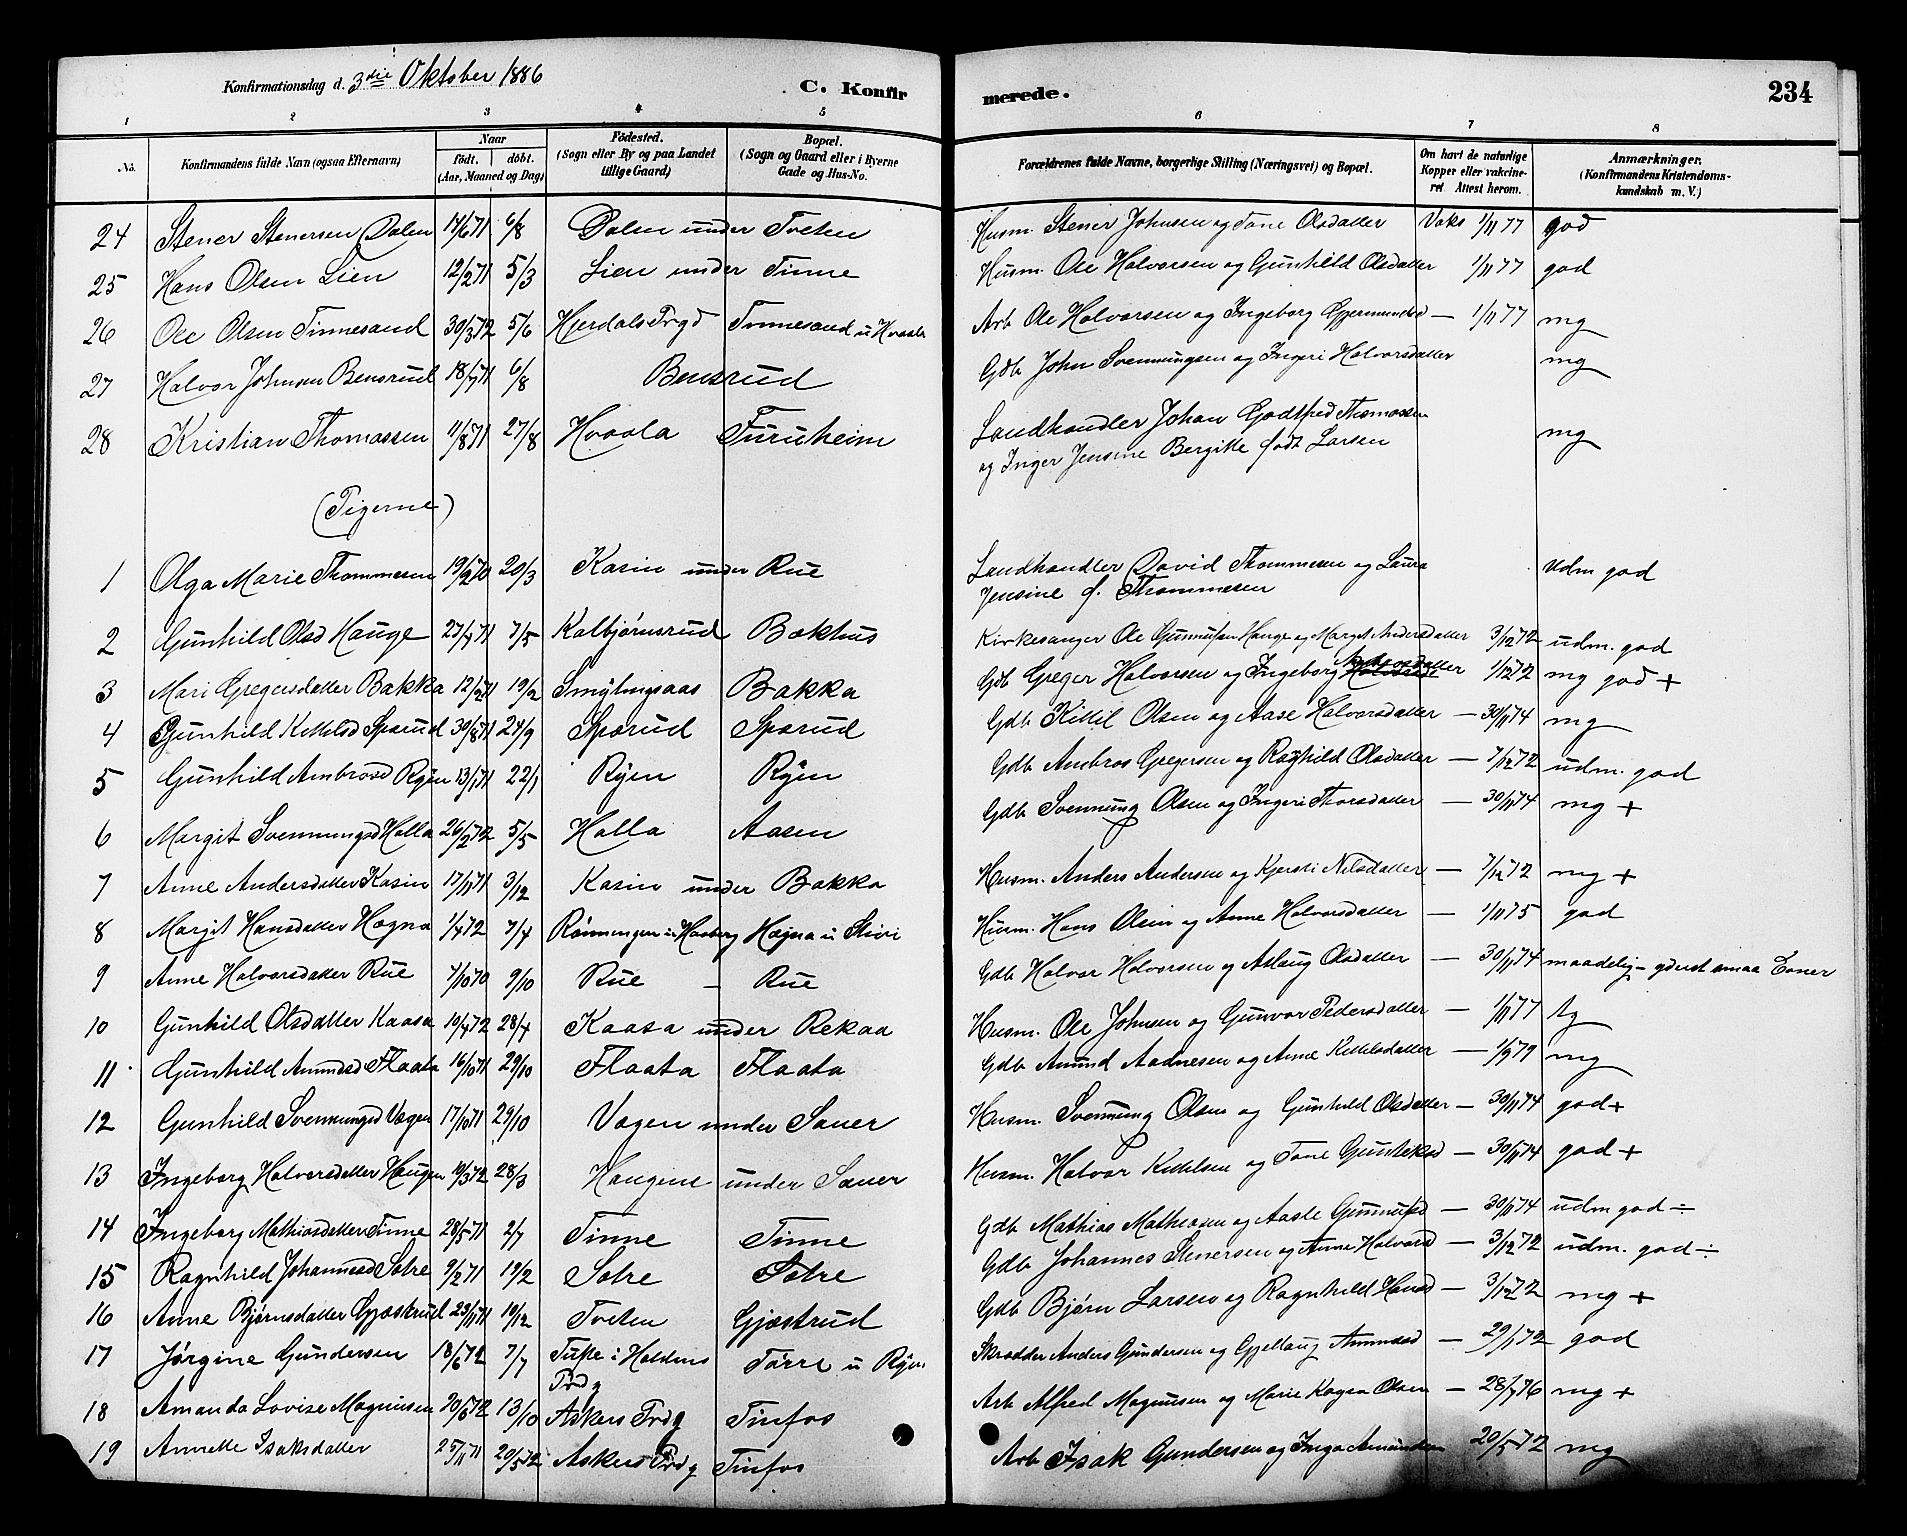 Konfirmationsdag d. 3die Oktober 1886 C. Konfirmerede. 234
1 2 3 4 5 6 7 8
No. Konfirmandens fulde Navn (ogsaa Efternavn) Naar født. døbt. (Aar, Maaned og Dag) Fødested. (Sogn eller By og paa Landet tillige Gaard) Bopæl. (Sogn og Gaard eller i Byerne Gade og Hus-No. Forældrenes fulde Navne, borgerlige Stilling (Næringsvei) og Bopæl. Om havt de naturlige Kopper eller vakcineret Attest herom. Anmærkninger. (Konfirmandens Kristendomskundskab m. V.)
24 Stener Stenersen Dalen 17/6 71 6/8 Dalen under Tveten Husm. Stener Johnsen og Tone Olsdatter Vaks 1/11 77 god
25 Hans Olsen Lien 12/2 71 5/3 Lien under Tinne Husm. Ole Halvorsen og Gunhild Olsdatter 1/11 77 god
26 Ole Olsen Tinnesand 30/3 72 5/6 Hjerdals Prgd Tinnesand u Hvaala Arb Ole Halvorsen og Ingeborg Gjermundsd — 1/11 77 mg
27 Halvor Johnsen Bensrud 18/7 71 6/8 Bensrud Gdb John Svennungsen og Ingeri Halvorsdatter mg
28 Kristian Thomassen 11/8 71 27/8 Hvaala Furuheim Landhandler Johan Godtfred Thomassen
og Inger Jensine Bergitte født Larsen mg
(Pigerne)
1 Olga Marie Thommesen 19/2 70 20/3 Kasin under Rue Landhandler David Thommesen og Laura
Jensine f. Thommesen udm god
2 Gunhild Olsd Hauge 27/4 71 7/5 Kolbjørnsrud Bakhus Kirkesanger Ole Gunnulsen Hauge og Margit Andersdatter 3/12 72 udm. god
3 Mari Gregersdatter Bakka 12/2 71 19/2 Smytingsaas Bakka Gdb Greger Halvorsen og Ingeborg Halvorsd 1/12 72 mg god +
4 Gunhild Kittilsd Sparud 30/8 71 24/9 Sparud Sparud Gdb Kittil Olsen og Aase Halvorsdatter — 30/11 74 mg
5 Gunhild Ambrosd Ryen 13/1 71 22/1 Ryen Ryen Gdb Ambros Gregersen og Ragnhild Olsdatter — 7/12 72 udm. god
6 Margit Svennungsd Halla 26/2 72 5/5 Halla Aasen Gdb Svennung Olsen og Ingeri Thorsdatter — 30/11 74 mg +
7 Anne Andersdatter Kasin 17/11 71 3/12 Kasin under Bakka Husm. Anders Andersen og Kjersti Nilsdatter — 7/12 72 mg +
8 Margit Hansdatter Hogna 1/4 72 7/4 Rønningen u Haaberg Hogna u Skivi Husm. Hans Olsen og Anne Halvorsdatter — 1/11 75 god
9 Anne Halvorsdatter Rue 7/10 70 9/10 Rue — Rue Gdb Halvor Halvorsen og Aslaug Olsdatter — 30/11 74 maadelig – yderst smaa Evner
10 Gunhild Olsdatter Kaasa 19/4 72 28/4 Kaasa under Rekaa Husm. Ole Johnsen og Gunvor Pedersdatter — 1/11 77 tg
11 Gunhild Amundsd Flaata 16/10 71 29/10 Flaata Flaata Gdb Amund Aadnesen og Anne Kittilsdatter — 1/9 79 mg
12 Gunhild Svennungsd Vagen 17/10 71 29/10 Vagen under Sauer Husm. Svennung Olsen og Gunhild Olsdatter — 30/11 74 god +
13 Ingeborg Halvorsdatter Haugen 10/3 72 28/3 Haugene under Sauer Husm. Halvor Kittilsen og Tone Gunleiksd — 30/11 74 god +
14 Ingeborg Mathiasdatter Tinne 28/5 71 2/7 Tinne Tinne Gdb Mathias Mathiasen og Aaste Gunnulsd — 30/11 74 udm god ÷
15 Ragnhild Johannesd Sotre 9/2 71 19/2 Sotre Sotre Gdb Johannes Stenersen og Anne Halvorsd — 3/12 72 udm. god ÷
16 Anne Bjørnsdatter Gjæstrud 23/11 71 10/12 Tveten Gjæstrud Gdb Bjørn Larsen og Ragnhild Hansd — 3/12 72 mg +
17 Jørgine Gundersen 18/6 72 7/7 Tufte i Holdens
Prdg Torre u Ryen Skrædder Anders Gundersen og Gjellaug Amundsd — 29/1 72 god
18 Amanda Lovise Magnusen 20/6 72 13/10 Askers Prdg Tinfos Arb Alfred Magnusen og Marie Kagsa Olsen — 28/7 76 mg +
19 Annette Isaksdatter 25/11 71 20/5 72 Askers Prdg Tinfos Arb Isak Gundersen og Inga Amundsen 20/5 72 mg